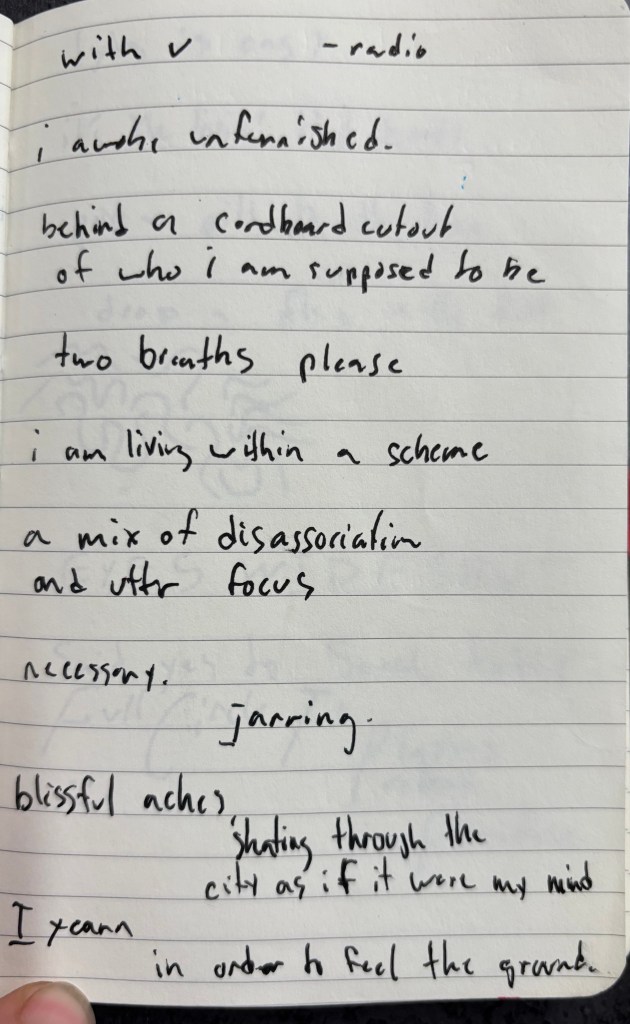 with v - radio
i awoke unfurnished.
behind a cardboard cutout
of who i am supposed to be
two breaths please
i am living within a scheme
a mix of disassociation
and utter focus
necessary.
jarring.
blissful aches,
skating through the
city as if it were my mind
I yearn
in order to feel the ground.